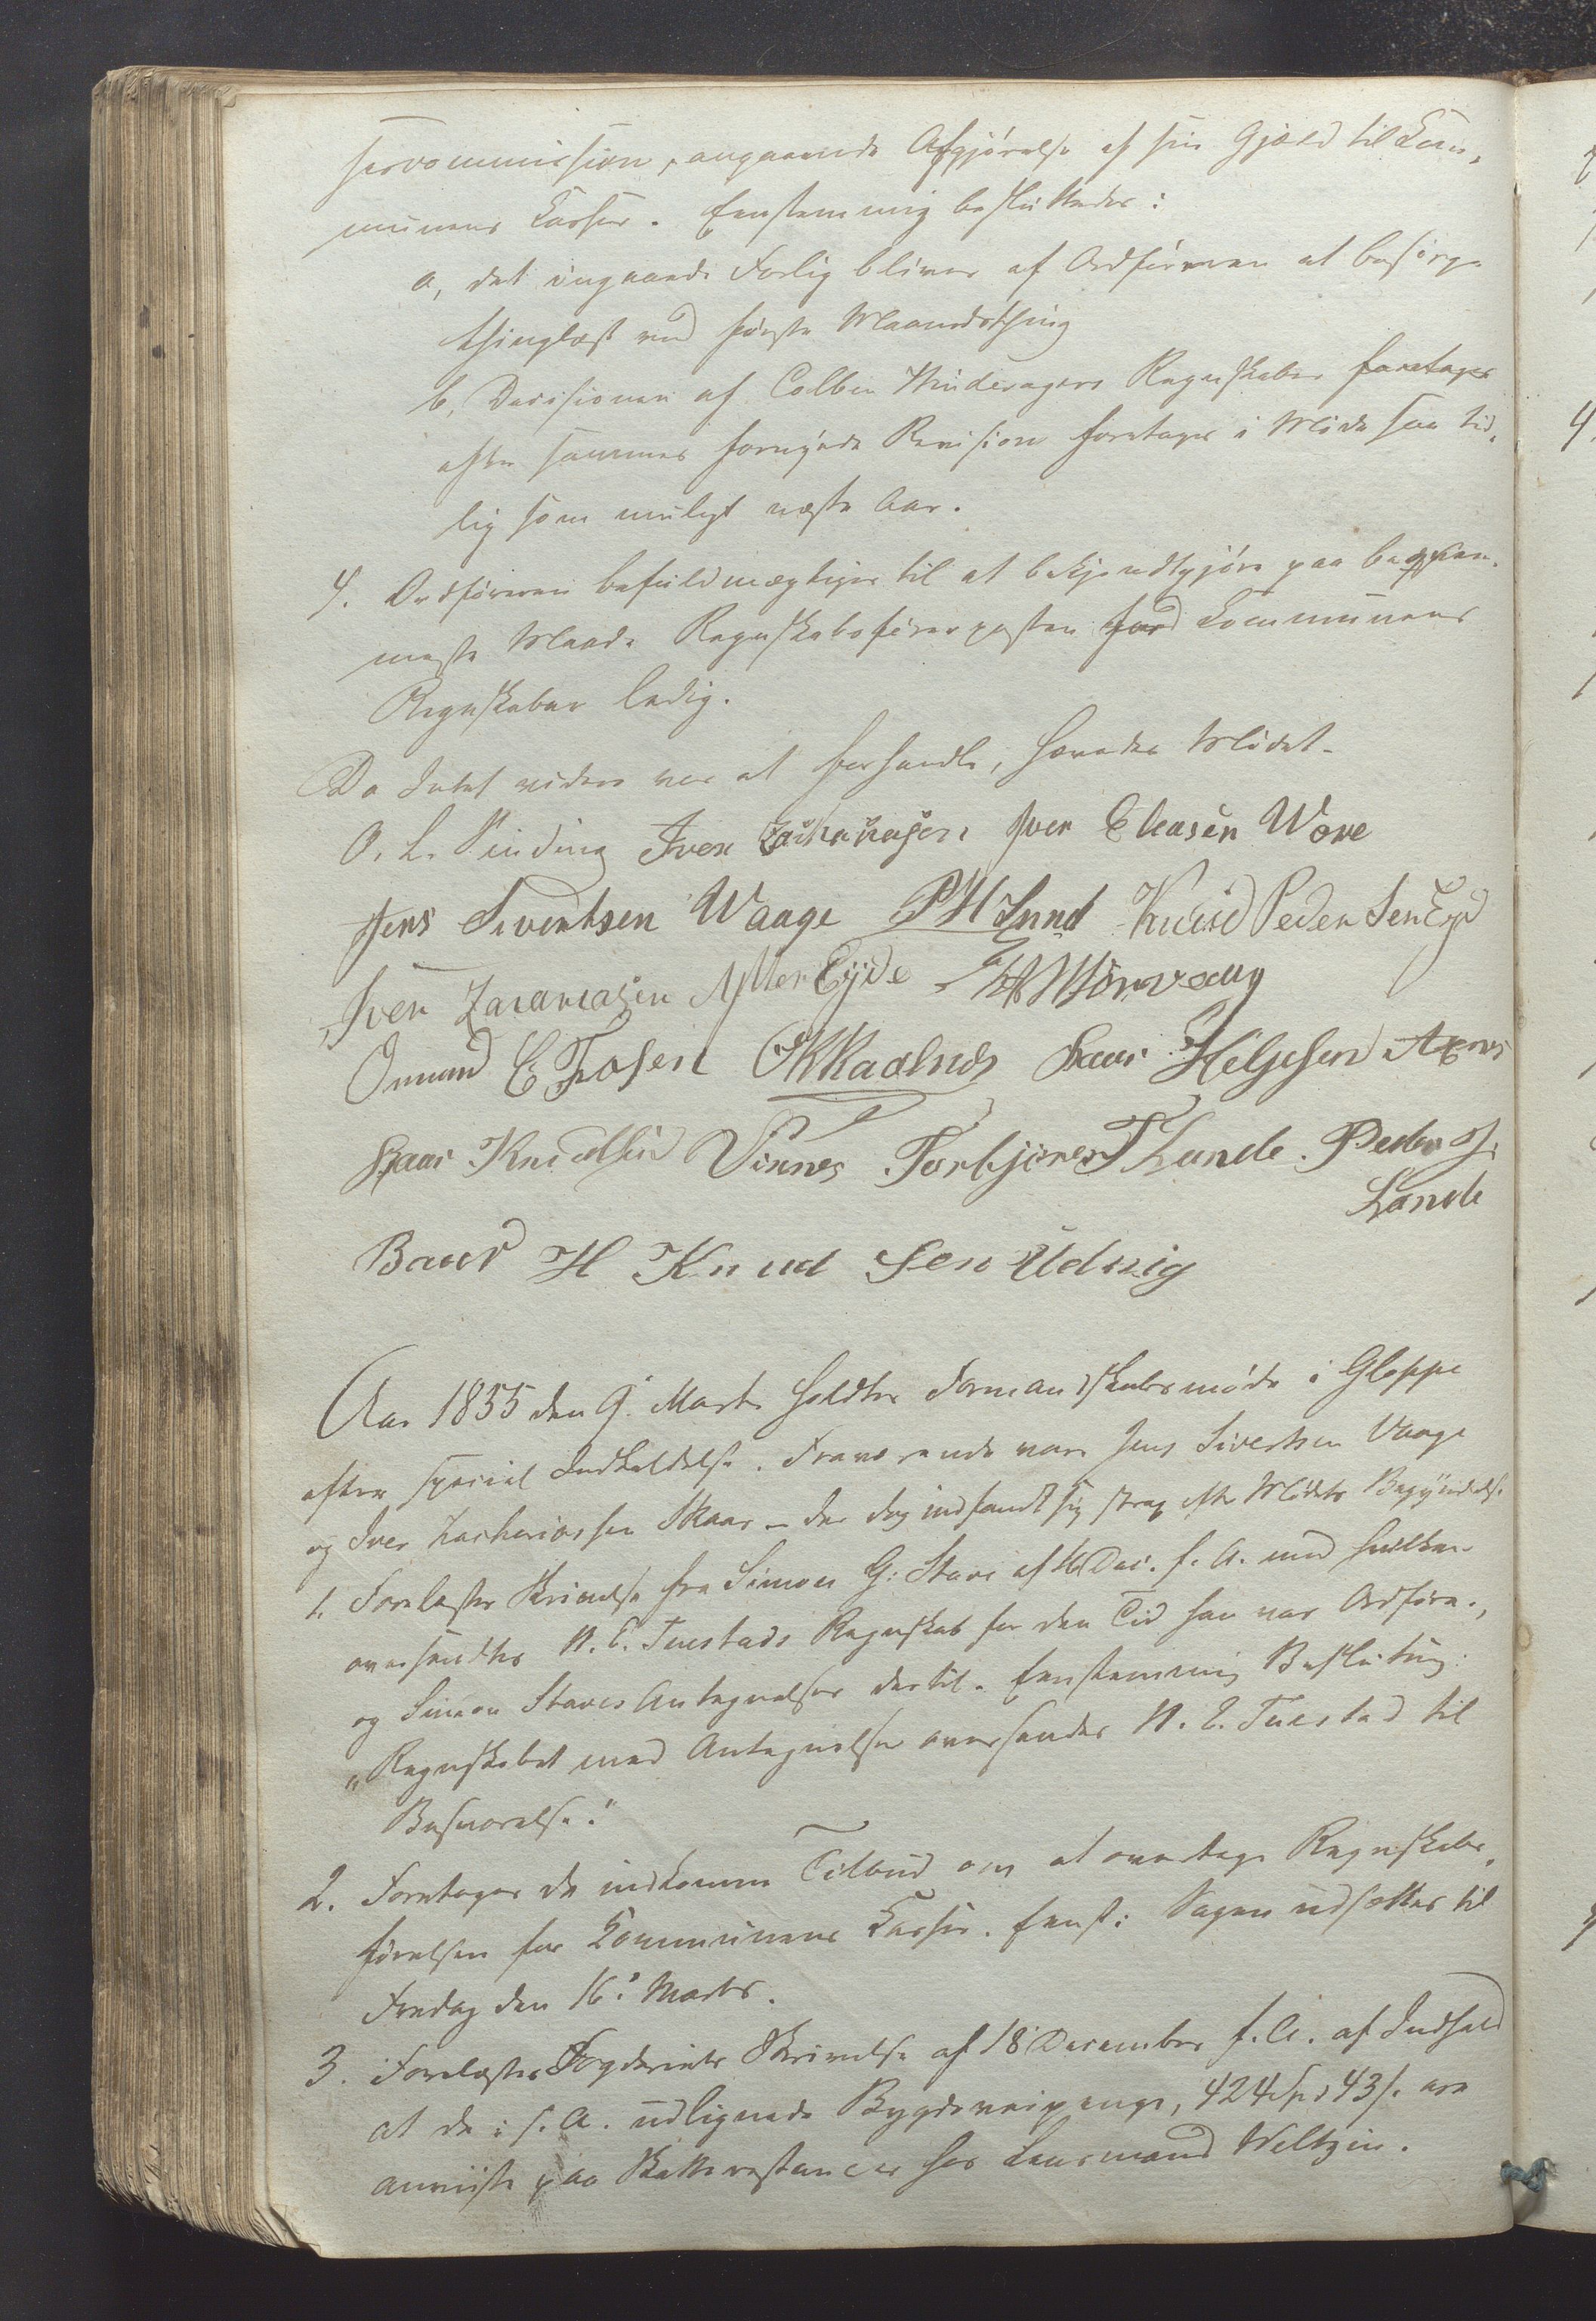 servommission, angaaende Afgjörelse af sin Gjæld til Kom-
munens Kasser. Eenstemmig besluttedes:
a, det indgaaede Forlig bliver af Ordföreren at besörge
thinglæst ved förste Maanedsthing
b, Decisionen af Colben Hinderagers Regnskaber foretages
efter sammes fornyede Revision foretages i Möde saa tid-
lig som muligt næste Aar.
4. Ordföreren befuldmægtiges til at bekjendtgjöre paa beqvem-
meste Maade Regnskabsförerposten ved Kommunens
Regnskaber ledig.
Da Intet videre var at forhandle, hævedes Mödet.
O. L. Vinding Iver Iver Eleasen Wove
Jens Sivertsen Waage P H Lund Knud Peder Sen Eyd
Iver Zacariasen Ytter Eyde
Ommund E Fosen Lars Helgesen Axnes
Lars Knudsen Vinnes Torbjören T Lunde. Peder J.
Lunde
Baar H Knud Sen Udvig
Aar 1855 den 9. Marts holdtes Formandskabsmöde i Gloppe
efter special Indkaldelse. Fraværende vare Jens Sivertsen Vaage
og Iver Zachariassen Skaar – der dog indfandt sig strax efter Mödets Begyndelse
1. Forelæstes Skrivelse fra Simon G. Stave af Dec. f. A. med hvilken
oversendtes N. E. Tuestads Regnskab for den Tid han var Ordförer,
og Simon Staves Antegnelser dertil. Eenstemmig Beslutning:
"Regnskabet med Antegnelser oversendes N. E. Tuestad til
Besvarelse."
2. Foretoges de indkomne Tilbud om at overtage Regnskabs-
förelsen for Kommunens Kasser. Eenst: Sagen udsættes til
Fredag den 16. Marts.
3. Forelæstes Fogderiets Skrivelse af 18 December f. A. af Indhold
at de i f. A. udlignede Bygdeveipenge, 424 Spd 43 s. ere
anviiste paa Skatterestancer hos Lensmand Weltzin.